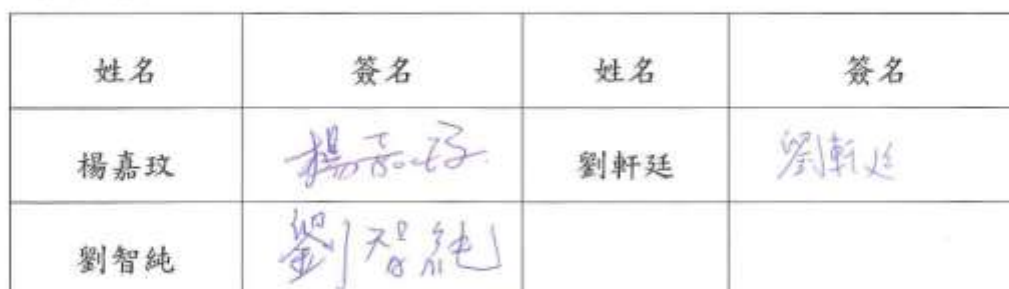 姓名 簽名 姓名 簽名
楊嘉玟 楊嘉玟 劉軒廷 劉軒廷
劉智純 劉智純